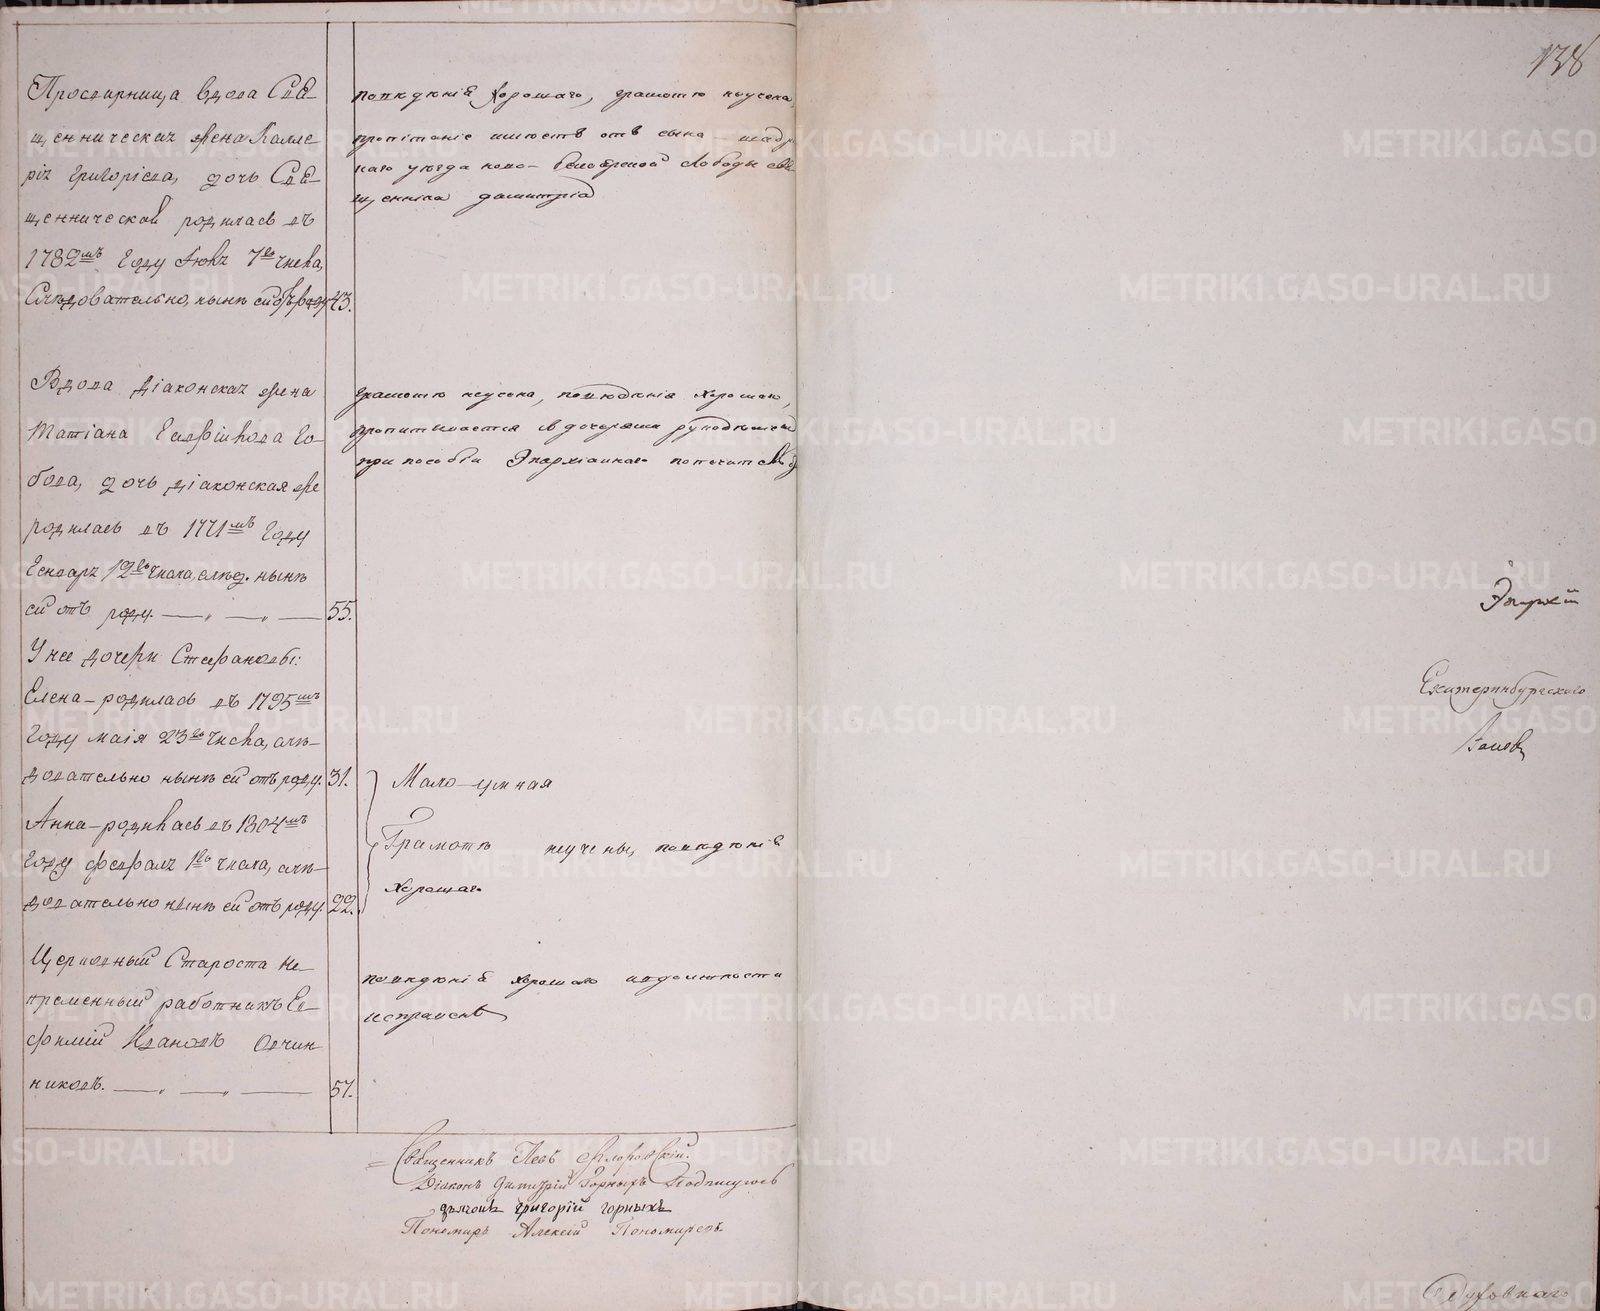 138
Просвирница вдова Свя-
щенническая жена Валле
рія Григоріева, дочь Свя-
щеннической родилась въ
1782мъ году Іюня 7го числа,
Слѣдовательно, нынѣ ей отъ роду 43.
поведенія хорошаго, грамотѣ неучена,
пропитаніе имѣетъ отъ сына
наго уѣзда ново- слободы свя
щенника Димитрія
Вдова діаконская жена
Татіана
бова, дочь діаконская же
родилась въ 1771мъ году
Генваря 12го числа, слѣд. нынѣ
ей отъ роду. — „ — „ — 55.
грамотѣ неучена, поведенія хорошаго,
пропитывается
при пособіи Эпархіальнаго попечительства
У нее дочери Стефановы:
Елена – родилась въ 1795мъ
году маія 23го числа, слѣ-
довательно нынѣ ей отъ роду. 31.
Анна – родилась въ 1804мъ
году февраля 1го числа, слѣ-
довательно нынѣ ей отъ роду. 22.
Мало-умная
Грамотѣ неучены, поведенія
хорошаго
Церковный Староста не-
пременный работникъ Ев-
фимій Ивановъ Овчин-
никовъ. — „ — „ — 57.
поведенія хорошаго и в должности
исправенъ
Священникъ Левъ Флоровскій.
Діаконъ Димитрій Горныхъ Подписуюсь
дьячокъ григорій горныхъ
Пономарь Алексій Пономаревъ
Эпархіи
Екатеринбургскаго
Духовнаго
METRIKI.GASO-URAL.RU